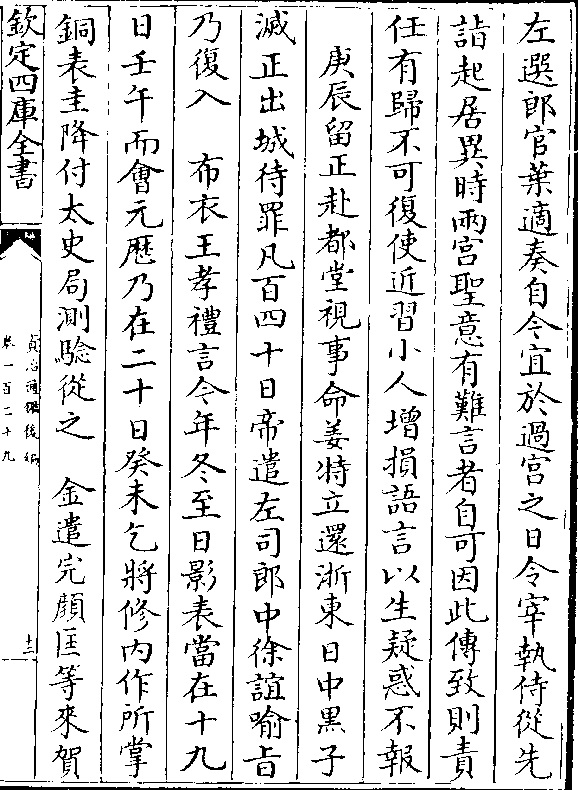 左選郎官葉適奏自今宜於過宮之日令宰執侍從先
詣起居異時兩宮聖意有難言者自可因此傳致則責
任有歸不可復使近習小人增損語言以生疑惑不報
庚辰留正赴都堂視事命姜特立還浙東日中黒子
滅正出城待罪凡百四十日帝遣左司郎中徐誼喻㫖
乃復入　布衣王孝禮言今年冬至日影表當在十九
日壬午而會元厯乃在二十日癸未乞將修内作所掌
銅表圭降付太史局測驗從之　金遣完顔匡等來賀
欽定四庫全書
資治通鑑後編
卷一百二十九
十三